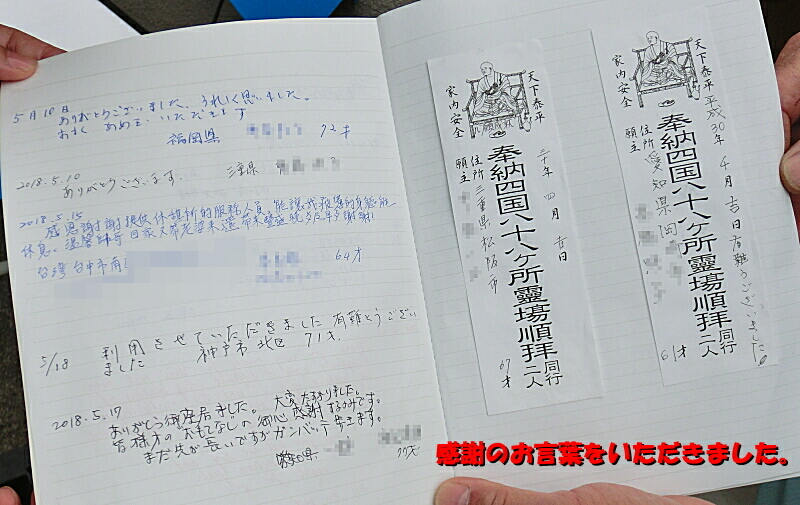 5月10日
ありがとうございました。うれしく思いました。
あめを いただきます
福岡県 72才
2018.5.10
ありがとうございます。
三重県
2018.5.15
感恩謝謝提供休護所的服務人員,能讓我疲憊的身軀能
休息。
台湾 台中市南
64才
5/18 利用させていただきました 有難とうござい
ました 神戸市 北区 71才.
2018.5.17
ありがとう御座居ました。大変たすかりました。
皆様方のおもてなしの御心感謝するのみです。
まだ先が長いですがガンバッテ歩きます。
県 77才
天下泰平
家内安全
奉納四国八十八ケ所霊場順拝
同行二人
三十年 四月 吉日
住所 三重県松阪市
願主
67才
天下泰平
家内安全
奉納四国八十八ケ所霊場順拝
同行二人
平成30年 4月吉日 有難うございました
住所 愛知県岡
願主
61才
感謝のお言葉をいただきました。